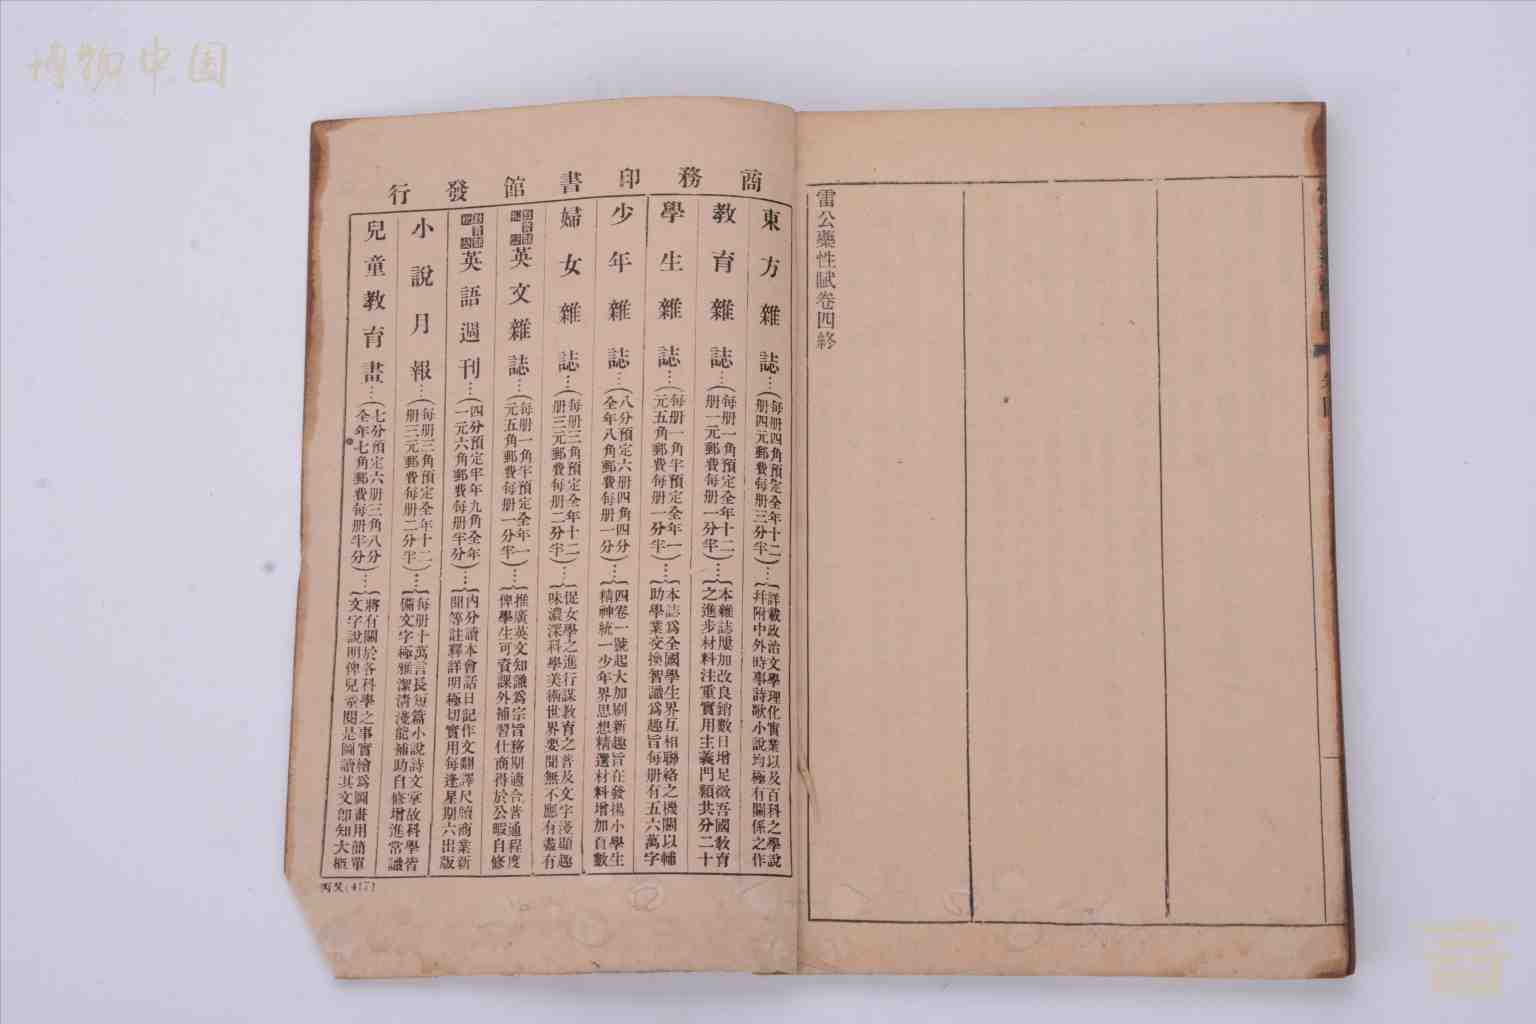 博物中国
雷公藥性賦卷四終
商務印書館發行
東方雜誌…(每册四角預定全年十二册四元郵費每册三分半)…{詳載政治文學理化實業以及百科之學說并附中外時事詩歌小說均極有關係之作
教育雜誌…(每册一角預定全年十二册一元郵費每册一分半)…{本雜誌屢加改良銷數日增足徵吾國教育之進步材料注重實用主義門類共分二十
學生雜誌…(每册一角半預定全年一元五角郵費每册一分半)…{本誌爲全國學生界互相聯絡之機關以輔助學業交換智識爲趣旨每册有五六萬字
少年雜誌…(八分預定六册四角四分全年八角郵費每册一分)…{四卷一號起大加刷新趣旨在發揚小學生精神統一少年界思想精選材料增加頁數
婦女雜誌…(每册三角預定全年十二册三元郵費每册二分半)…{促女學之進行謀教育之普及文字淺顯趣味濃深科學美術世界要聞無不應有盡有
英文雜誌…(每册一角半預定全年一元五角郵費每册一分半)…{推廣英文知識爲宗旨務期適合普通程度俾學生可資課外補習仕商得於公暇自修
英語週刊…(四分預定半年九角全年一元六角郵費每册半分)…{內分讀本會話日記作文翻譯尺牘商業新聞等註釋詳明極切實用每逢星期六出版
小說月報…(每册三角預定全年十二册三元郵費每册二分半)…{每册十萬言長短篇小說詩文掌故科學皆備文字極雅潔清淺能補助自修增進常識
兒童教育畫…(七分預定六册三角八分全年七角郵費每册半分)…{將有關於各科學之事實繪爲圖畫用簡單文字說明俾兒童閱是圖讀其文即知大概
丙癸(417)